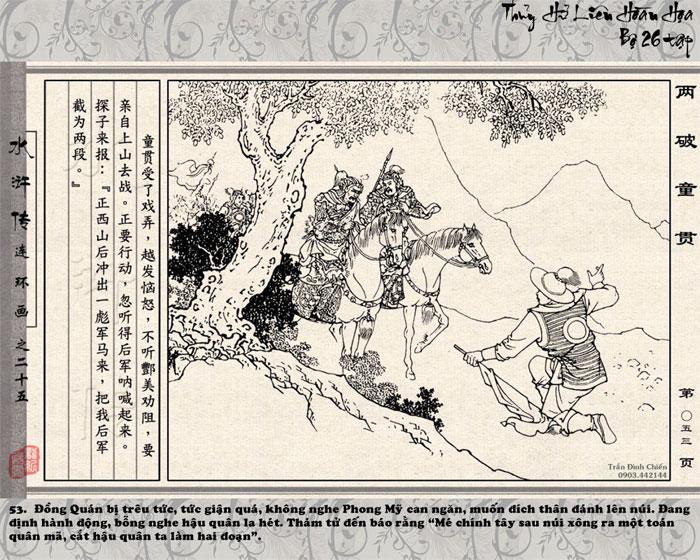 Thủy Hử Liên Hoàn Họa
Bộ 26 tập
两破童贯
水浒传连环画之二十五
童贯受了戏弄，越发恼怒，不听酆美劝阻，要
亲自上山去战。正要行动，忽听得后军呐喊起来。
探子来报：『正西山后冲出一彪军马来，把我后军
截为两段。』
第〇五三页
Trần Đình Chiến
0903.442144
53. Đồng Quán bị trêu tức, tức giận quá, không nghe Phong Mỹ can ngăn, muốn đích thân đánh lên núi. Đang
định hành động, bỗng nghe hậu quân la hét. Thám tử đến báo rằng “Mé chính tây sau núi xông ra một toán
quân mã, cắt hậu quân ta làm hai đoạn”.